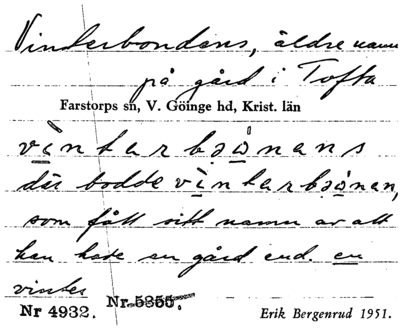 Vinterbondens, äldre namn
på gård i Tofta
Farstorps sn, V. Göinge hd, Krist. län
vìntarbǝnans
där bodde vìntarbǝnan,
som fått sitt namn av att
han hade en gård end. en
vinter
Nr 4932. Nr 5355.
Erik Bergenrud 1951.